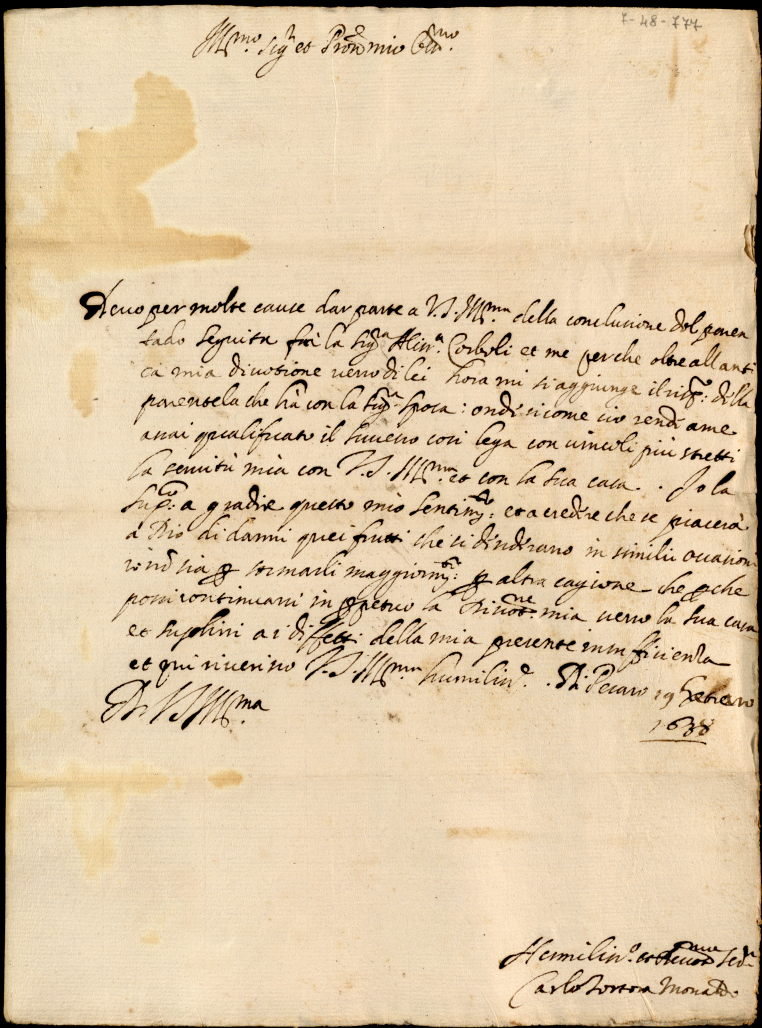 7-48-777
Ill.mo Sig.r et Pron mio Oss.mo
Devo per molte cause dar parte a V.S. Ill.ma della conclusione del paren
tado seguita frà la Sig.ra Corboli et me perche oltre all anti
ca mia divotione verso di lei hora mi si aggiunge il risp.o della
parentela che hà con la Sig.ra sposa: onde sicome ciò rende a me
assai qualificato il successo così lega con vincoli più stretti
la servitù mia con V.S. Ill.ma et con la sua casa. Io la
sup.co a gradire questo mio sentim.to: et a credere che se piacerà
à Dio di darmi quei frutti che si desiderano in simili occasioni
io nō sia p stimarli maggiorm.te: p altra cagione che pche
possi continuarsi in ppetuo la mia verso la sua casa
et suplirsi a i diffetti della mia presente insufficienza
et qui riverisco V.S. Ill.ma humiliss.e. Di Pesaro 19 Febraro
1638
Di V.S. Ill.ma
Humiliss.o et Devot.mo Ser.r
Carlo